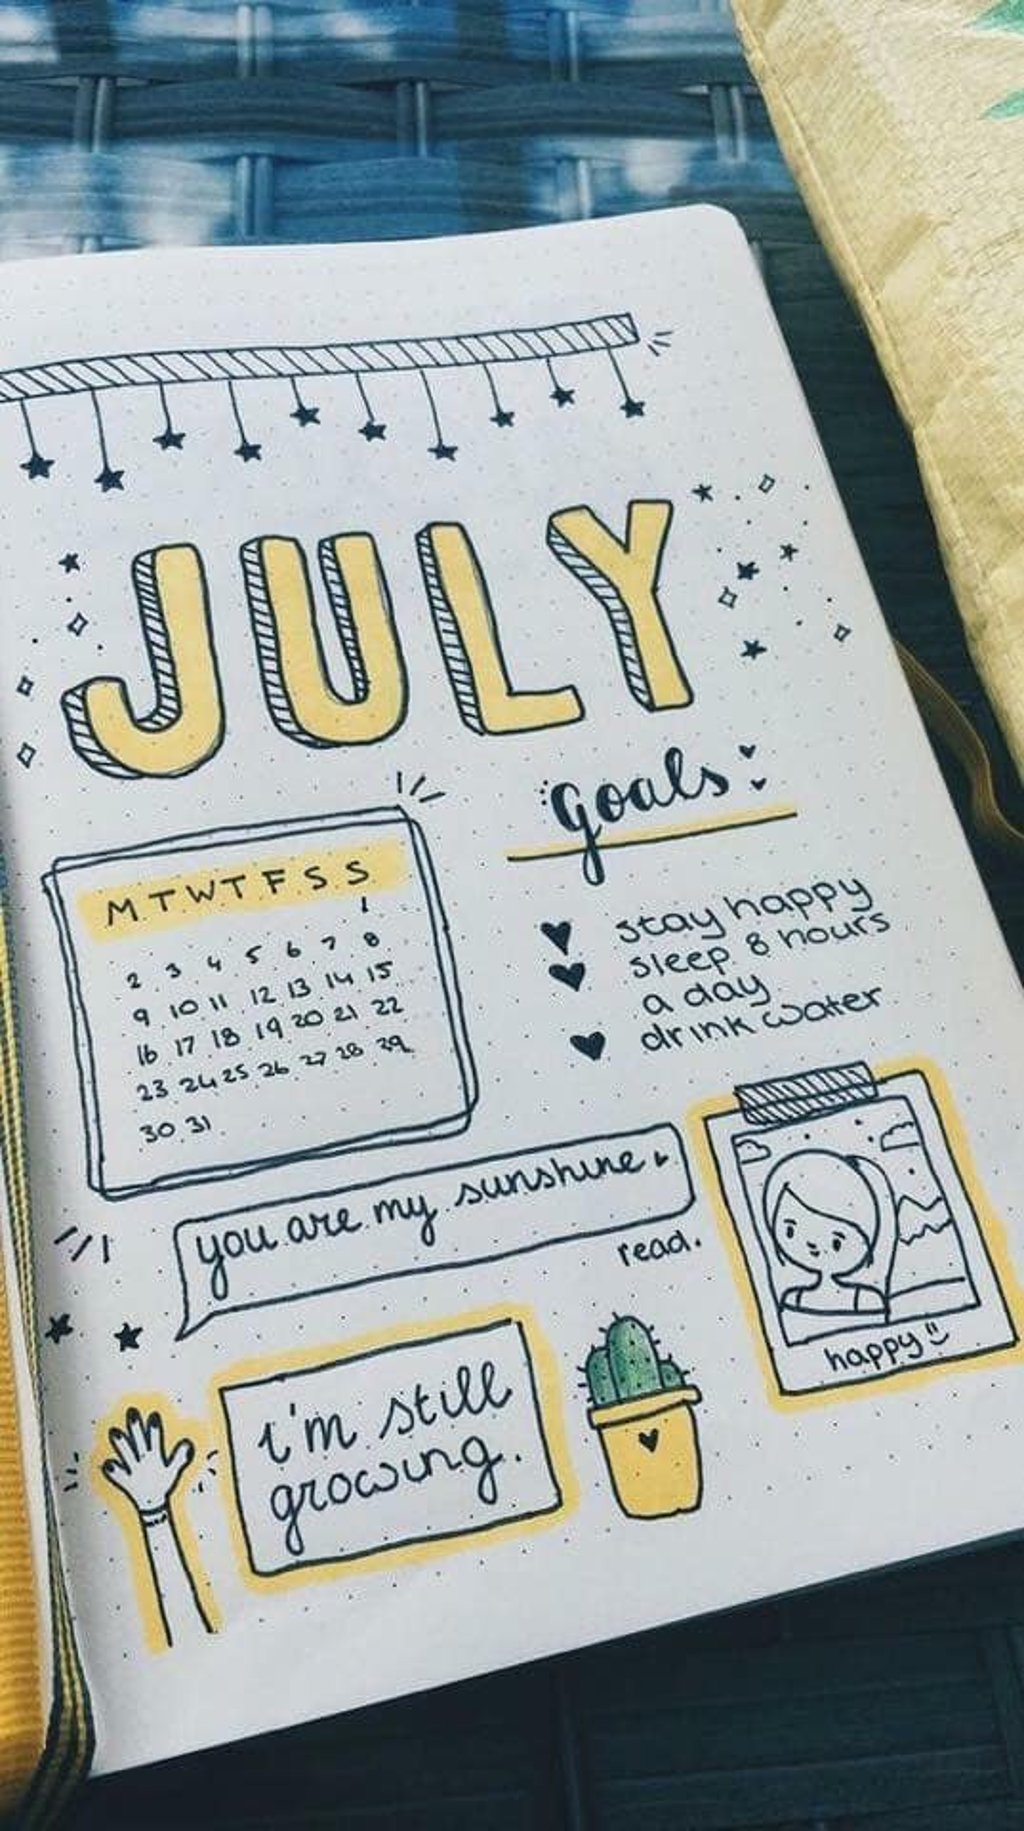 JULY
goals
M T W T F S S
1
2 3 4 5 6 7 8
9 10 11 12 13 14 15
16 17 18 19 20 21 22
23 24 25 26 27 28 29
30 31
stay happy
sleep 8 hours
a day
drink water
you are my sunshine
read.
happy
i'm still
growing.